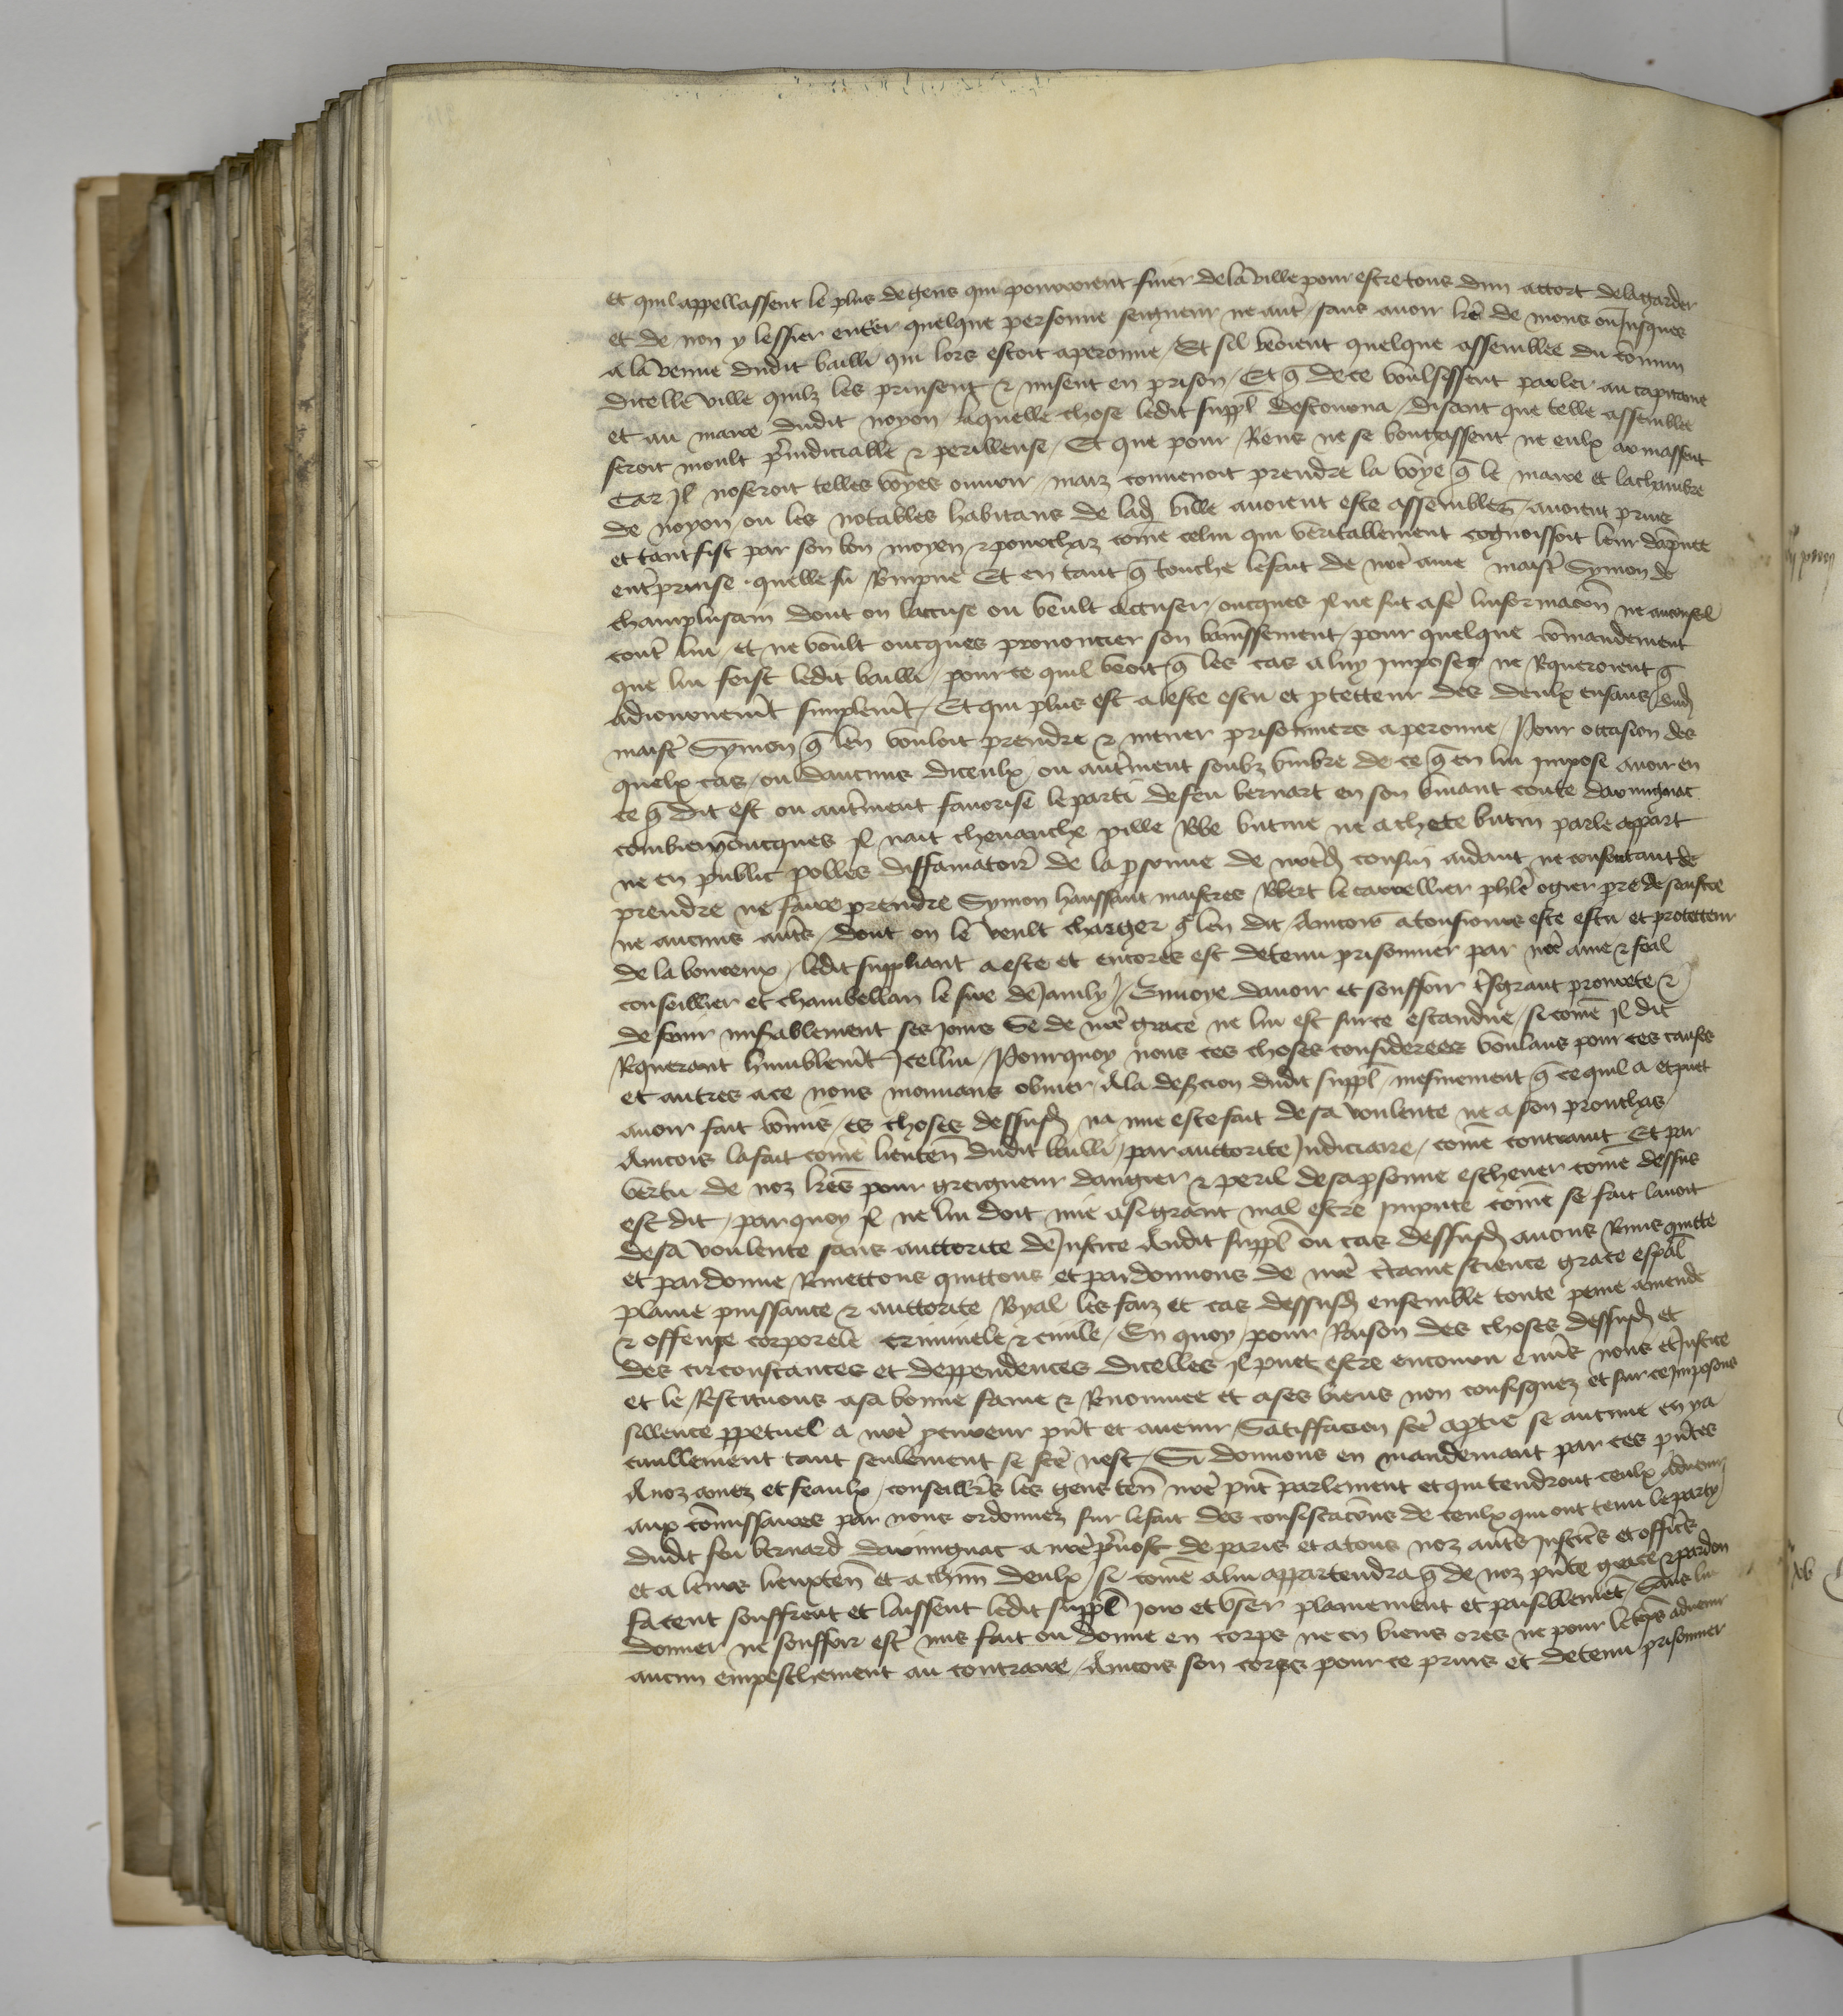 et quil appellassent le plus de gens qui pourroient finer de la ville pour estre tous dun accort de la garder
et de non y lessier entrer quelque personne seigneur ne autre sans avoir lrēs de mons ou jusques
a la venue dudit bailli qui lors estoit a peronne / Et sil veoient quelque assemblee du cōmun
dicelle ville quilz les prinsent & meissent en prison / Et q̄ de ce voulsissent parler au capitaine
et au maire dudit noyon / laquelle chose ledit suppl destourna / disant que telle assemblee
seroit moult p̄iudiciable & perilleuse / Et que pour Riens ne se boutassent ne eulx armassent
Car Il noseroit telles voyes ouvrir / maiz convenoit prendre la voye q̄ le maire et la chambre
de noyon ou les notables habitans de lad̄ ville avoient este assemblez / avoient prins
et tant fist par son bon moyen & pourchaz cōme celui qui veritablement cognoissoit leur dāpnee
entp̄rinse . quelle fu Rompue Et en tant q̄ touche le fait de nr̄e ame maistr̄ Symon de
champluisant dont on laccuse ou veult accuser / oncques Il ne fut a fēr linformacōn ne a conseil
contr̄ lui / et ne voult oncques prononcier son banissement / pour quelque cōmandement
que lui feist ledit bailli / pour ce quil veoit q̄ les cas a luy Imposez ne Requeroient q̄
adiornemēt simplemēt / Et qui plus est a este escu et p̄tecteur des deulx enfans dud̄
maistr̄ Symon q̄ len vouloit prendre & mener prisonniers a peronne / Pour occasion des
quelx cas / ou daucuns diceulx / ou autrement soubz umbre de ce q̄ en lui impose avoir en
ce q̄ dit est ou autrement favorise le parti de feu bernart en son vivant conte darmignac
combien q̄ oncques Il nait chevauche pille Robe butine ne achete butin parle appart
ne en public polles diffamatoir̄ de la p̄sonne de nr̄ed̄ cousin aidant ne consentant de
prendre ne faire prendre Symon haussant maistres Robert le carrellier ph̄le ogier p̄re de senstre
ne aucuns autr̄s / dont on le veult charger q̄ len dit Aincois a tousiours este escu et protecteur
de la bonceux / ledit suppliant a este et encores est detenu prisonnier par nr̄e ame & feal
conseillier et chambellan le sire de Jauly / En voye davoir et souffrir tr̄sgrant povrete &
de finir mis̄ablement ses jours Se de nr̄e grace ne lui est sur ce estandue / si cōme Il dit
Requerant humblemēt Icellui / Pourquoy nous ces choses considerees voulans pour ces causes
et autres a ce nous mouvans obvier A la desercion dudit suppl / mesmement q̄ ce quil a et puet
avoir fait cōmis / es choses dessusd̄ na mie este fait de sa voulente ne a son prouchas
Aincois la fait cōme lieuten̄ dudit bailli / par auctorite Judiciaire / cōme contraint Et par
vertu de noz lrēs pour greigneur dangier & peril de sa p̄sonne eschever cōme dessus
est dit / par quoy Il ne lui doit mie a si grant mal estre Impute cōme se fait lavoit
de sa voulente sans auctorite de Justice Audit suppl ou cas dessusd̄ avons Remis quitte
et pardonne Remettons quittons et pardonnons de nr̄e c̄taine science grace esp̄al
plaine puissance & auctorite Royal les faiz et cas dessusd̄ ensemble toute peine amende
& offense corporele criminele & civile / En quoy pour Raison des choses dessusd̄ et
des circonstances et deppendences dicelles Il puet estre encouru envers nous et Justice
et le Restituons a sa bonne fame & Renommee et a ses biens non confisquez et sur ce Imposons
sillence ppetuel a nr̄e procureur pn̄t et avenir / Satisffacion fcē a ptie se aucune en y a
civillement tant seulement se fcē nest / Si donnons en mandemant par ces pn̄tes
A noz amez et feaulx / conseillr̄s les gens ten̄ nr̄e pn̄t parlement et qui tendront ceulx advenir
aux cōmissaires par nous ordonnez sur le fait des confiscacōns de ceulx qui ont tenu le party
dudit feu bernard darmignac a nr̄e p̄vost de paris et a tous noz autr̄s Justicr̄s et officr̄s
et a leurs lieuxten̄ et a chūn deulx / si cōme a lui appartendra q̄ de noz pn̄te grace & pardon
facent souffrent et laissent ledit suppl joir et user plainement et paisiblemēt / Sans lui
donner ne souffrir estr̄ mis fait ou donne en corps ne en biens ores ne pour le tēps advenir
aucun empeschement au contraire / Aincois son corps pour ce prins et detenu prisonnier